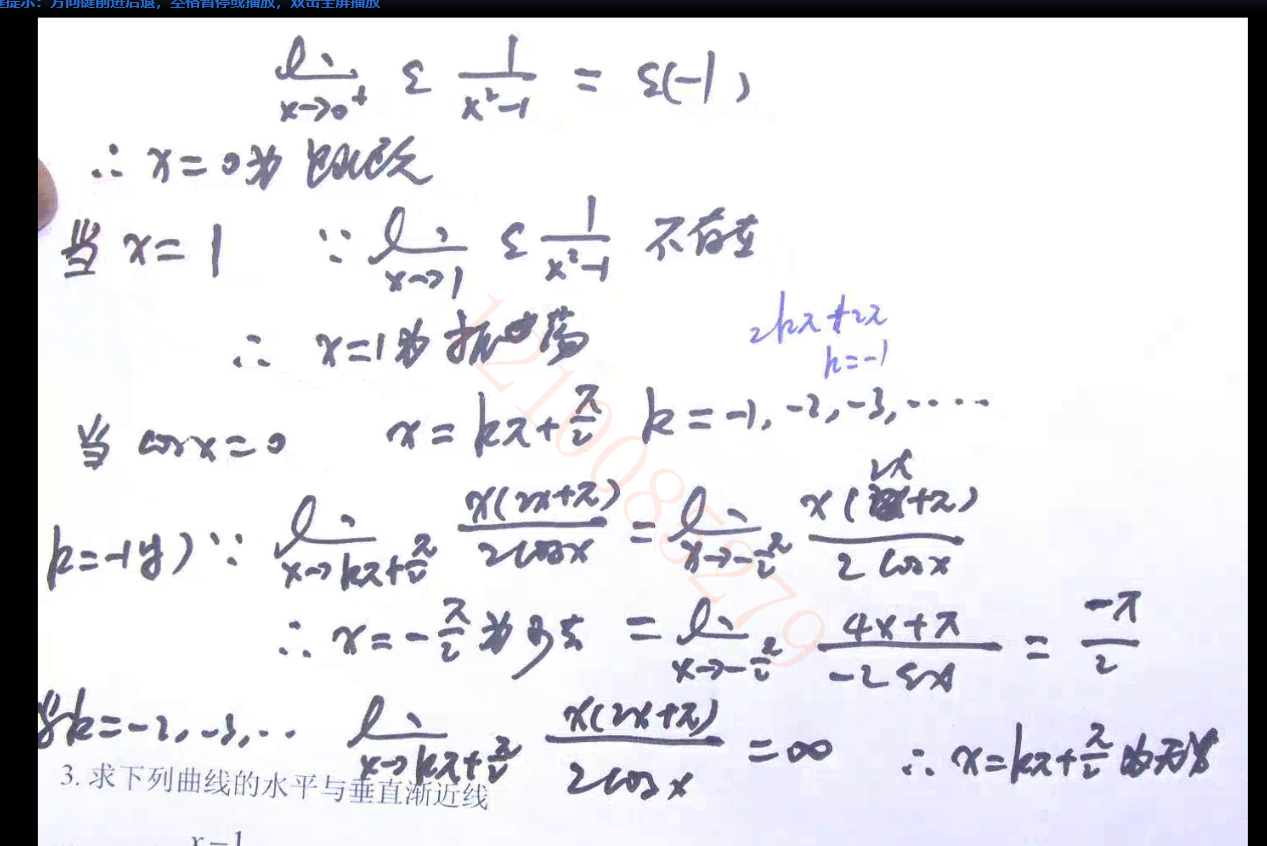 提示：方向键前进后退，空格暂停或播放，双击全屏播放
lim x→0⁺ sin 1/(x²-1) = sin(-1),
∴ x=0为跳跃
当 x=1 ∵ lim x→1 sin 1/(x²-1) 不存在
∴ x=1为振荡
2kπ+2π
k=-1
当 cosx=0 x=kπ+π/2 k=-1,-2,-3,....
k=-1时 ∵ lim x→kπ+π/2 x(2x+π)/(2cosx) = lim x→-π/2 x(2x+π)/(2cosx)
∴ x=-π/2为可去 = lim x→-π/2 (4x+π)/(-2sinx) = -π/2
当k=-2,-3,.. lim x→kπ+π/2 x(2x+π)/(2cosx) =∞ ∴ x=kπ+π/2为无穷
3. 求下列曲线的水平与垂直渐近线
x-1